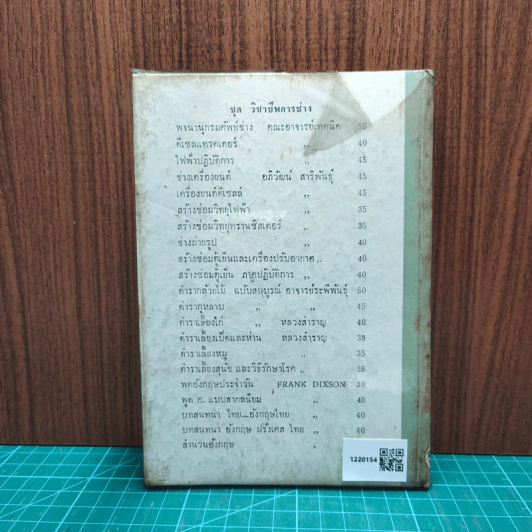 ชุด วิชาชีพการช่าง
พจนานุกรมศัพท์ช่าง คณะอาจารย์เทคนิค 50
ดีเซลแทรคเตอร์ ,, 40
ไฟฟ้าปฏิบัติการ ,, 45
ช่างเครื่องยนต์ อภิวัฒน์ สาริพันธุ์ 45
เครื่องยนต์ดีเซลส์ ,, 45
สร้างซ่อมวิทยุไฟฟ้า ,, 35
สร้างซ่อมวิทยุทรานซิสเตอร์ ,, 35
ช่างถ่ายรูป ,, 40
สร้างซ่อมตู้เย็นและเครื่องปรับอากาศ ,, 40
สร้างซ่อมตู้เย็น ภาคปฏิบัติการ ,, 40
ตำรากล้วยไม้ ฉบับสมบูรณ์ อาจารย์ระพีพันธุ์ 50
ตำรากุหลาบ ,, ,, 45
ตำราเลี้ยงไก่ ,, หลวงสำราญ 40
ตำราเลี้ยงเป็ดและห่าน หลวงสำราญ 38
ตำราเลี้ยงหมู ,, 35
ตำราเลี้ยงสุนัข และวิธีรักษาโรค ,, 35
พูดอังกฤษประจำวัน FRANK DIXSON 30
พูด อ. แบบสากลนิยม ,, 40
บทสนทนา ไทย—อังกฤษไทย ,, 40
บทสนทนา อังกฤษ ฝรั่งเศส ไทย ,, 40
สำนวนอังกฤษ ,,
1220154